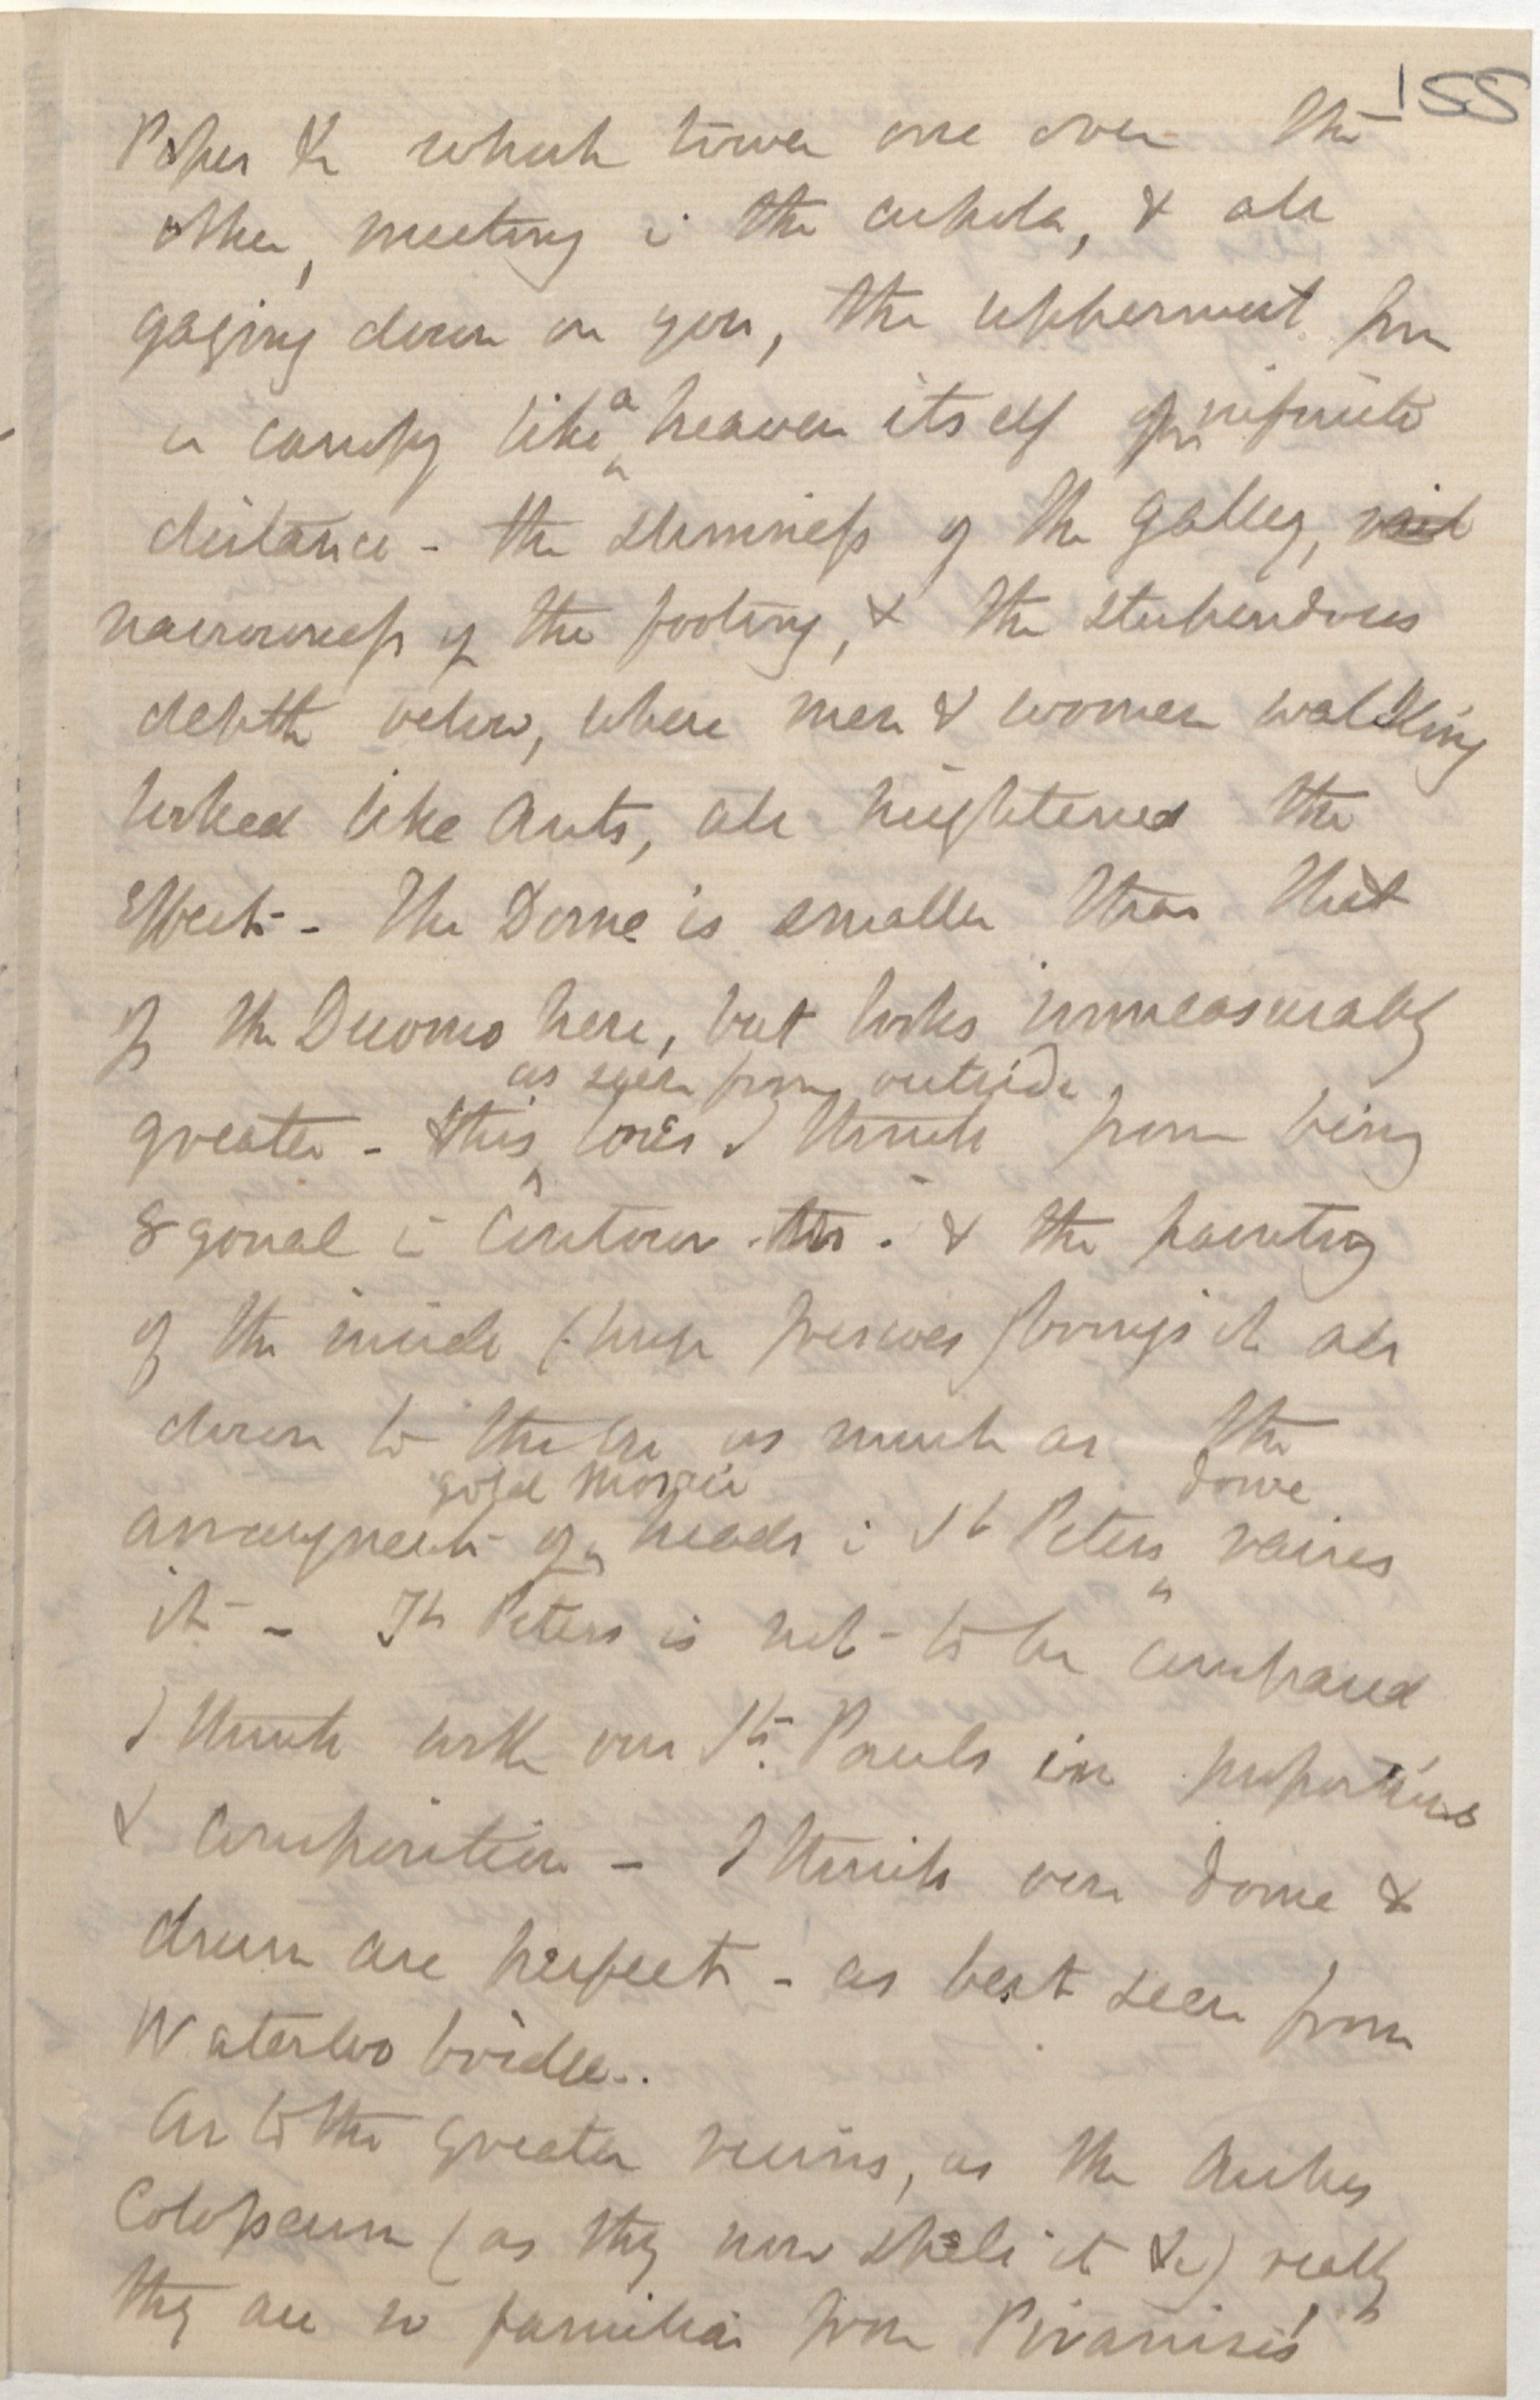 155
Popes &c which tower one over the
other, meeting i the cupola, & all
gazing down on you, the uppermost from
a canopy like a heaven itself of infinite
distance - the slimness of the gallery,
narrowness of the footing, & the stupendous
depth below, where men & women walking
looked like ants, all heightened the
Effect - The Dome is smaller than that
of the Duomo here, but looks immeasurably
as seen from outside
greater - this I think from being
8 gonal i contour. & the painting
of the inside (huge frescoes) brings it all
down to the as much as the
gold mosaic dome
arrangement of heads i St Peters raises
it - St Peters is not to be compared
I think with our St. Pauls in proportions
& composition - I think our dome &
drum are perfect - as best seen from
Waterloo bridge..
As to the greater ruins, as the Arches
Colosseum (as they now spell it &c) really
they are so familiar from Piranisis